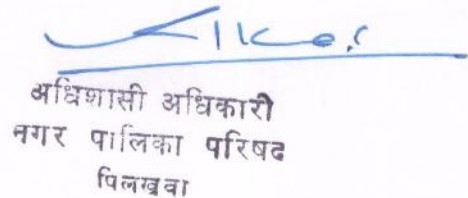 अधिशासी अधिकारी
नगर पालिका परिषद
पिलखवा